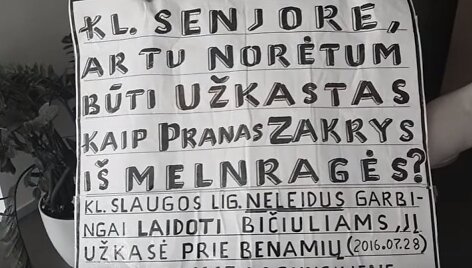 KL. SENJORE,
AR TU NORĖTUM
BŪTI UŽKASTAS
KAIP PRANAS ZAKRYS
IŠ MELNRAGĖS?
KL. SLAUGOS LIG. NELEIDUS GARBIN-
GAI LAIDOTI BIČIULIAMS, JĮ
UŽKASĖ PRIE BENAMIŲ (2016.07.28)